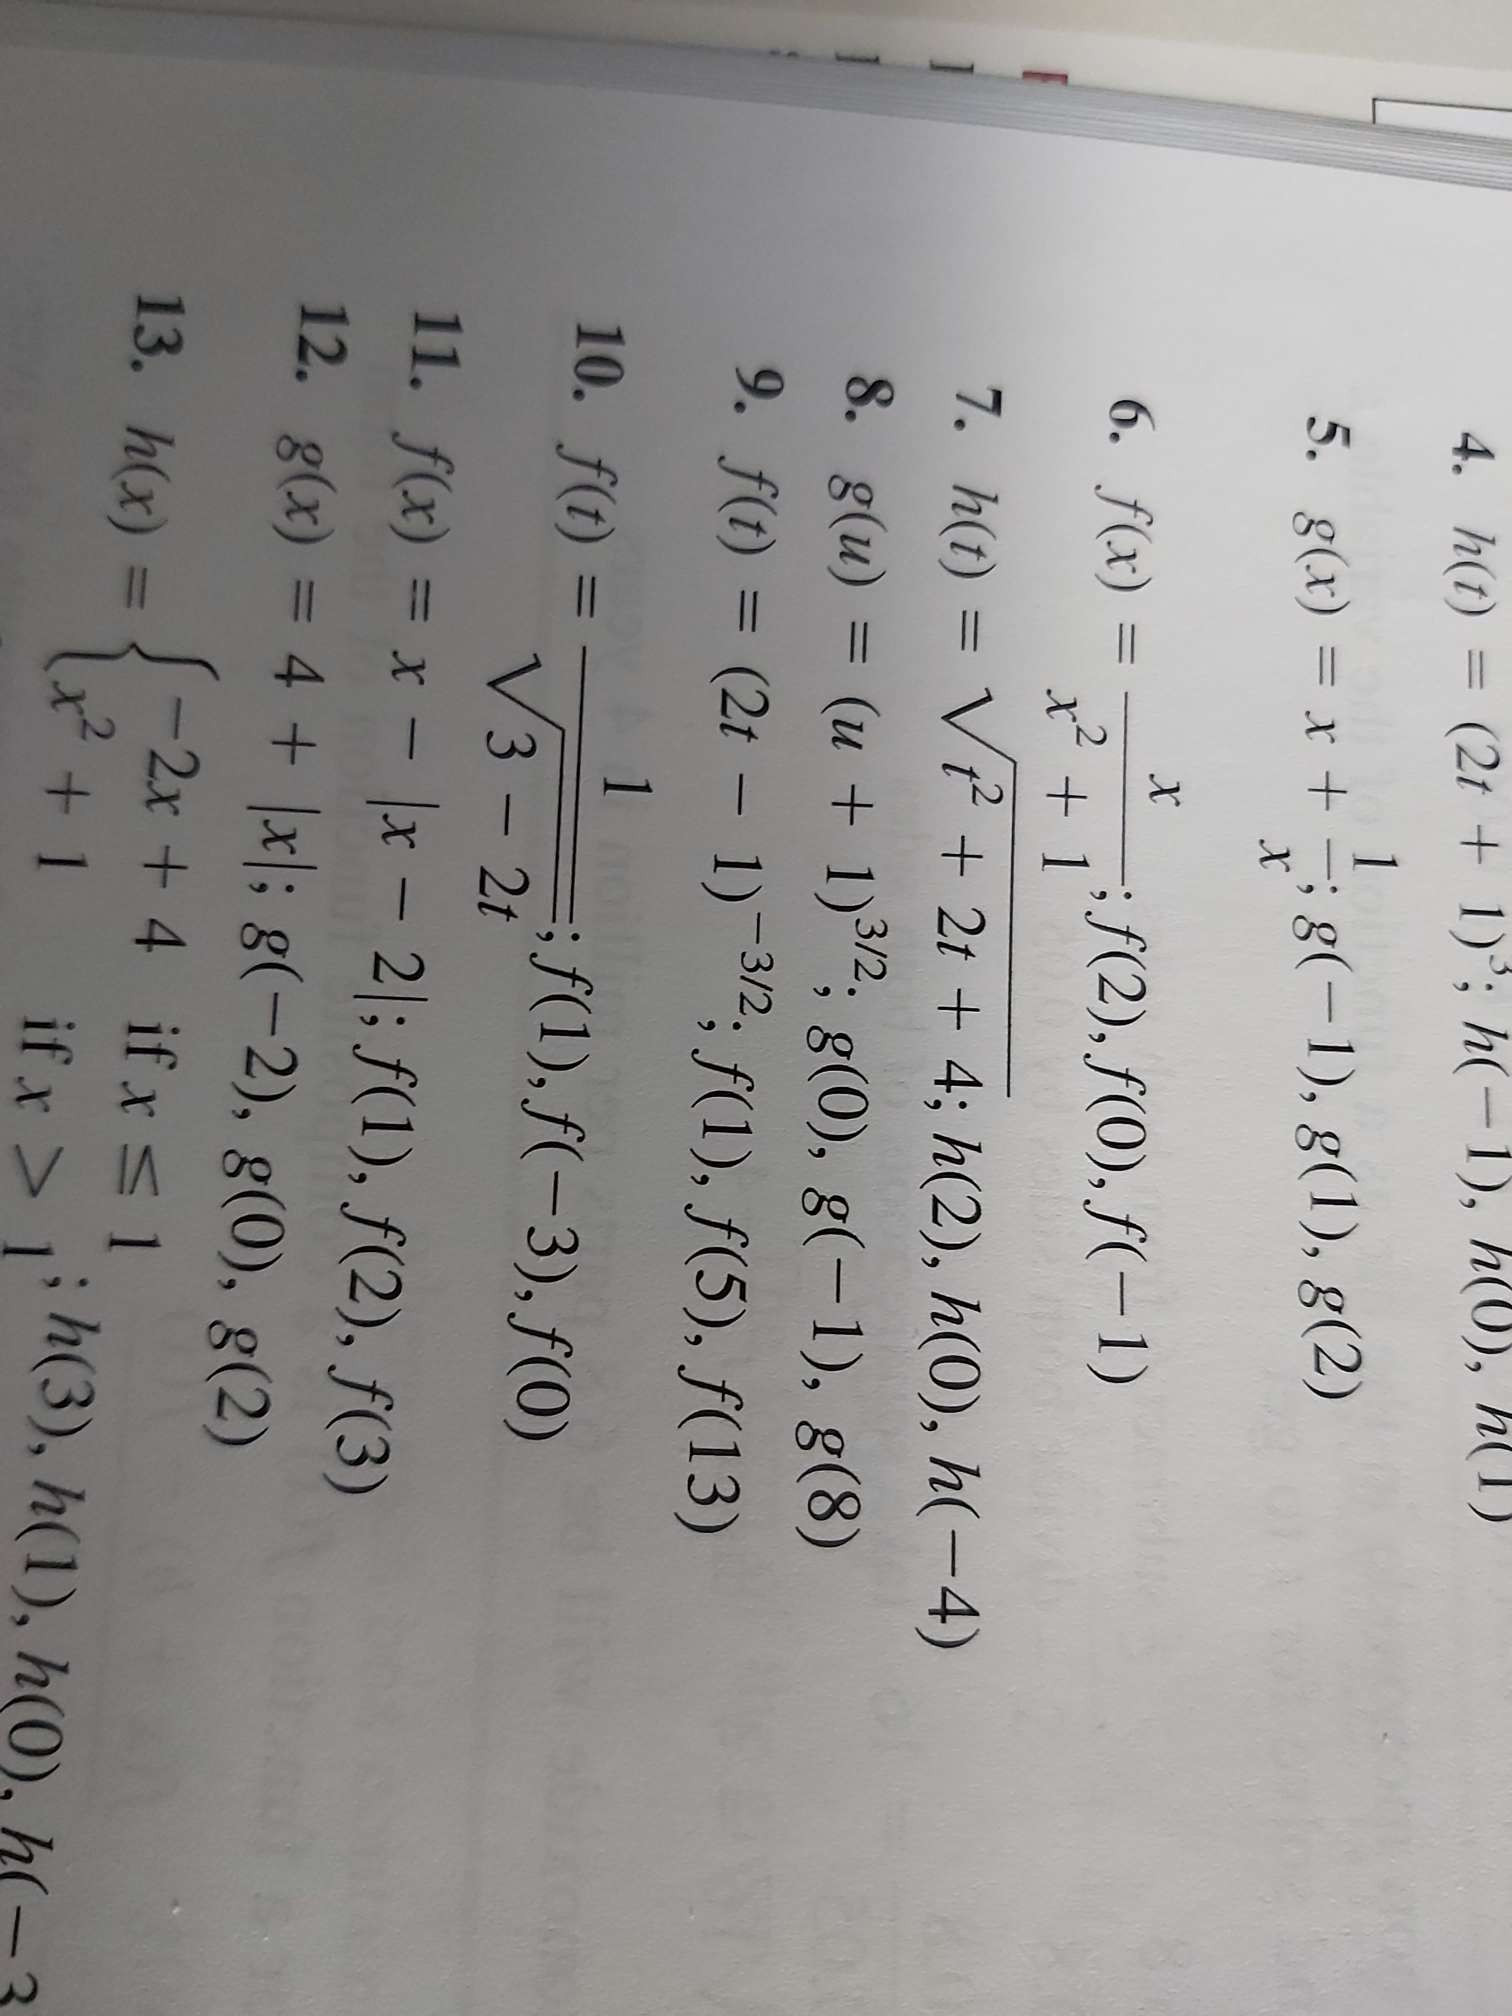 4. h(t) = (2t + 1)³; h(−1), h(0), h(1)
5. g(x) = x + 1/x; g(−1), g(1), g(2)
6. f(x) = x/(x² + 1); f(2), f(0), f(−1)
7. h(t) = √(t² + 2t + 4); h(2), h(0), h(−4)
8. g(u) = (u + 1)^(3/2); g(0), g(−1), g(8)
9. f(t) = (2t − 1)^(−3/2); f(1), f(5), f(13)
10. f(t) = 1/√(3 − 2t); f(1), f(−3), f(0)
11. f(x) = x − |x − 2|; f(1), f(2), f(3)
12. g(x) = 4 + |x|; g(−2), g(0), g(2)
13. h(x) = { −2x + 4 if x ≤ 1
x² + 1 if x > 1 ; h(3), h(1), h(0), h(−3